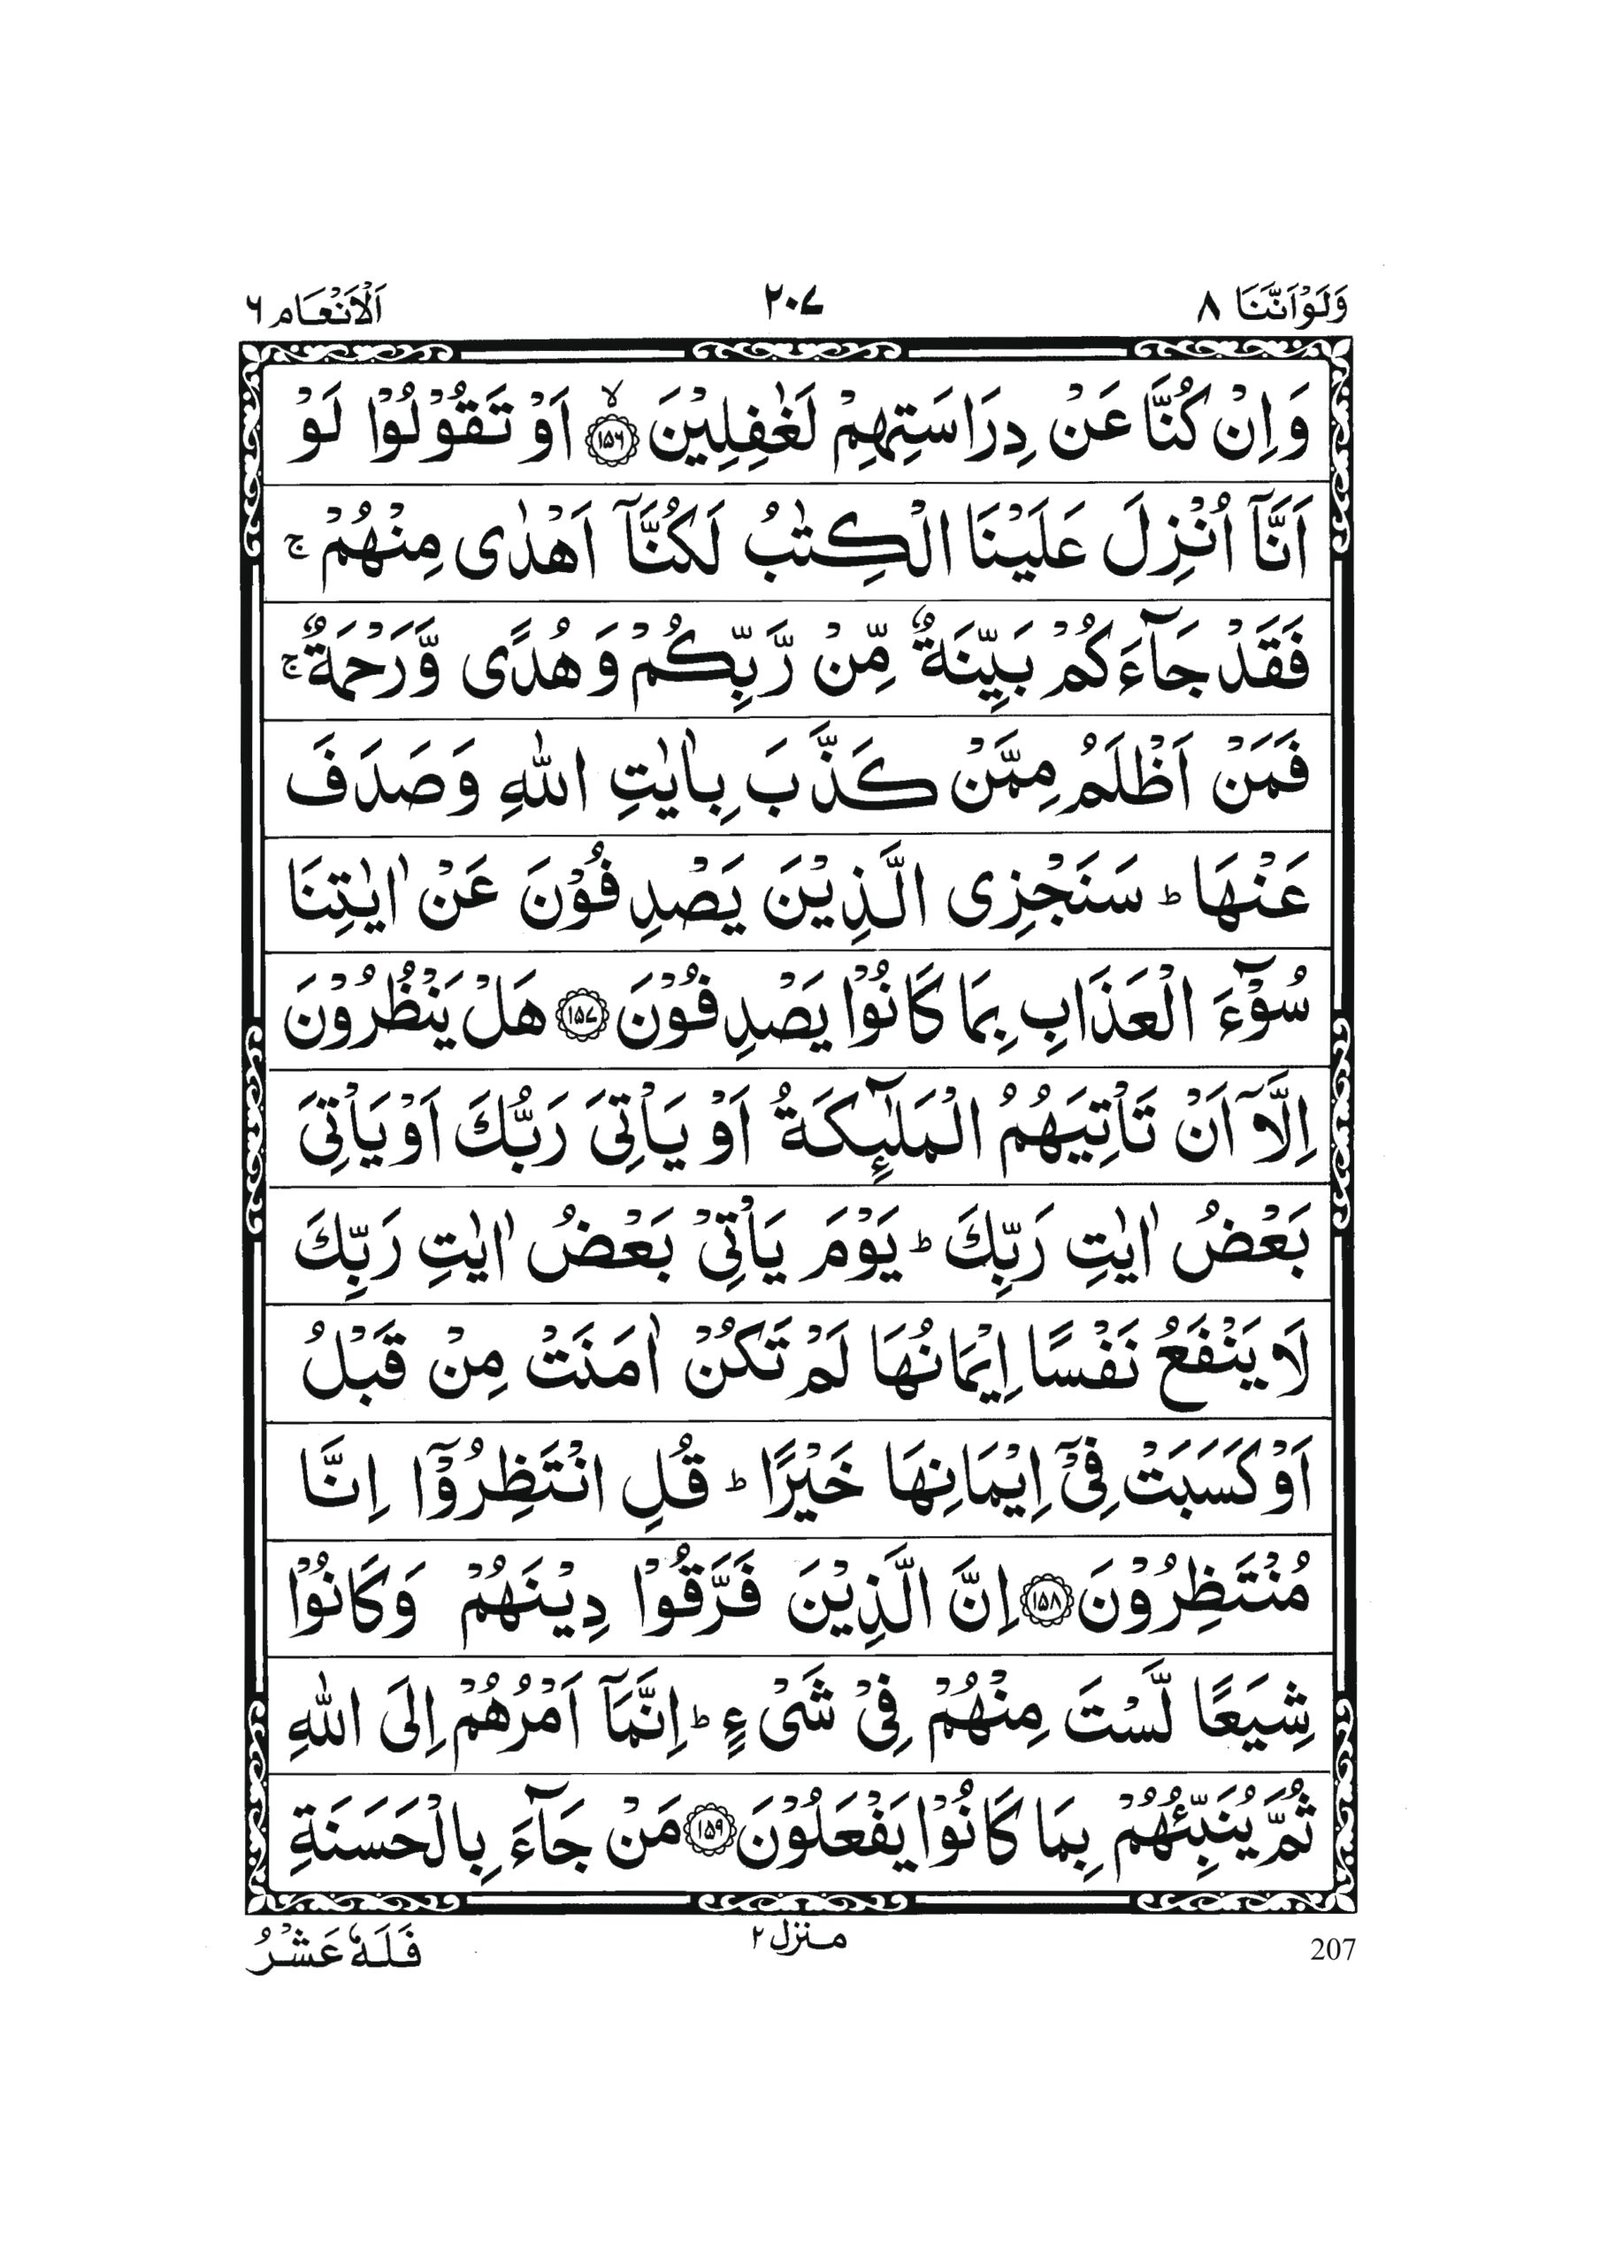 وَلَوْاَنَّنَا ۸
۲۰۷
اَلْاَنْعَام ۶
وَاِنْ كُنَّا عَنْ دِرَاسَتِهِمْ لَغٰفِلِيْنَ ۙ۝۱۵۶ اَوْ تَقُوْلُوْا لَوْ
اَنَّاۤ اُنْزِلَ عَلَيْنَا الْكِتٰبُ لَكُنَّاۤ اَهْدٰى مِنْهُمْ ۚ
فَقَدْ جَآءَكُمْ بَيِّنَةٌ مِّنْ رَّبِّكُمْ وَهُدًى وَّرَحْمَةٌ ۚ
فَمَنْ اَظْلَمُ مِمَّنْ كَذَّبَ بِاٰيٰتِ اللّٰهِ وَصَدَفَ
عَنْهَا ؕ سَنَجْزِى الَّذِيْنَ يَصْدِفُوْنَ عَنْ اٰيٰتِنَا
سُوْٓءَ الْعَذَابِ بِمَا كَانُوْا يَصْدِفُوْنَ ۝۱۵۷ هَلْ يَنْظُرُوْنَ
اِلَّاۤ اَنْ تَاْتِيَهُمُ الْمَلٰٓئِكَةُ اَوْ يَاْتِىَ رَبُّكَ اَوْ يَاْتِىَ
بَعْضُ اٰيٰتِ رَبِّكَ ؕ يَوْمَ يَاْتِىْ بَعْضُ اٰيٰتِ رَبِّكَ
لَا يَنْفَعُ نَفْسًا اِيْمَانُهَا لَمْ تَكُنْ اٰمَنَتْ مِنْ قَبْلُ
اَوْ كَسَبَتْ فِىْۤ اِيْمَانِهَا خَيْرًا ؕ قُلِ انْتَظِرُوْۤا اِنَّا
مُنْتَظِرُوْنَ ۝۱۵۸ اِنَّ الَّذِيْنَ فَرَّقُوْا دِيْنَهُمْ وَكَانُوْا
شِيَعًا لَّسْتَ مِنْهُمْ فِىْ شَىْءٍ ؕ اِنَّمَاۤ اَمْرُهُمْ اِلَى اللّٰهِ
ثُمَّ يُنَبِّئُهُمْ بِمَا كَانُوْا يَفْعَلُوْنَ ۝۱۵۹ مَنْ جَآءَ بِالْحَسَنَةِ
207
منزل ۲
فَلَهٗ عَشْرُ